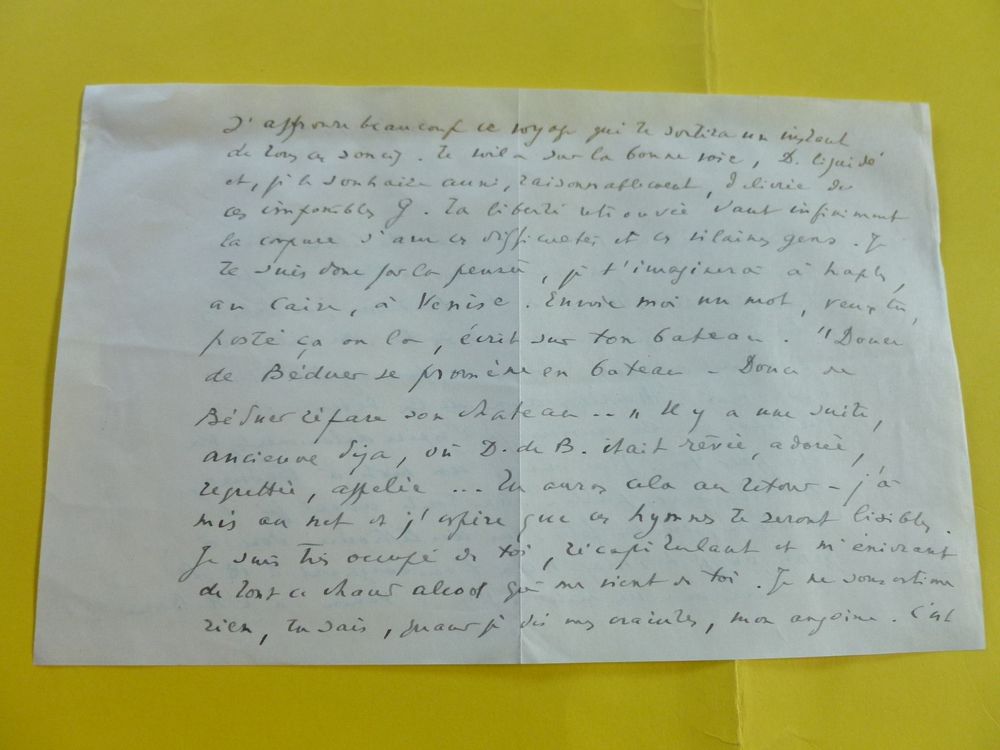 J'approuve beaucoup ce voyage qui te sortira un instant
de tous ces soucis. Te voilà sur la bonne voie, D. liquidé
et, je le souhaite aussi, raisonnablement, délivrée de
ces impossibles G. Ta liberté retrouvée vaut infiniment
la coupure d'avec ces difficultés et ces vilains gens. Je
te suis donc par la pensée, je t'imaginerai à Naples,
au Caire, à Venise. Envoie moi un mot, veux-tu,
posté ça ou là, écrit sur ton bateau. "Douce
de Béduer se promène en bateau - Douce de
Béduer répare son chateau... " Il y a une suite,
ancienne déjà, où D. de B. était rêvée, adorée,
regrettée, appelée ... Tu auras cela au retour - j'ai
mis au net et j'espère que ces hymnes te seront lisibles.
Je suis très occupé de toi, récapitulant et m'enivrant
de tout ce chaud alcool qui me vient de toi. Je ne sous estime
rien, tu sais, quand je dis mes craintes, mon angoisse. C'est